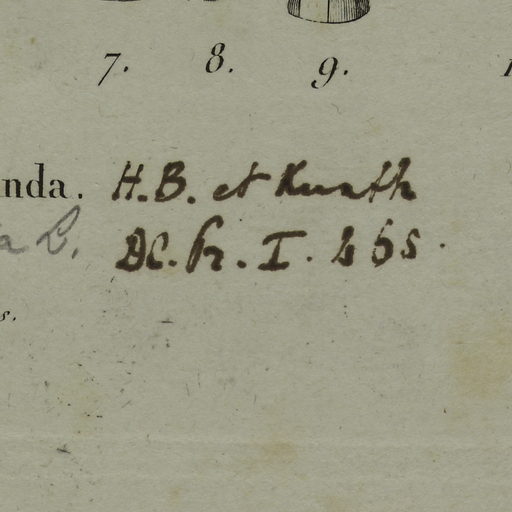 7. 8. 9.
nda. H.B. et Kunth
a L. DC. Pr. I. 465.
s.